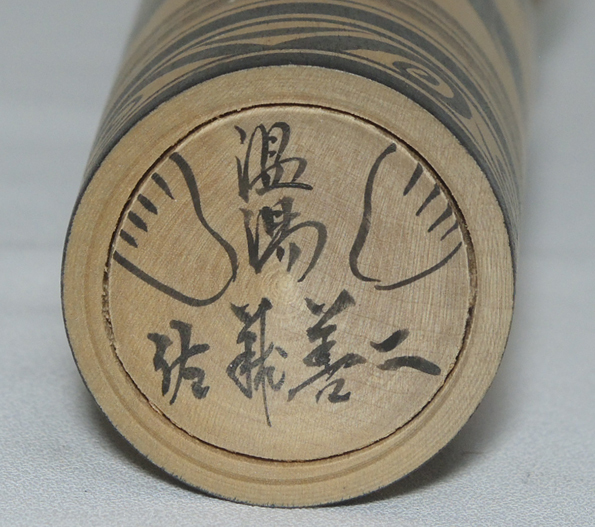 温湯
佐藤善二